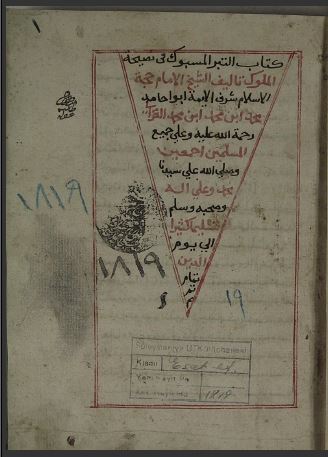 ١
كتاب التبر المسبوك فى نصيحة
الملوك تاليف الشيخ الامام حجة
الاسلام شرف الايمة ابو احامد
محمد ابن محمد ابن محمد الغزالى
رحمة الله عليه وعلي جميع
المسلمين اجمعين
وصلى الله علي سيدنا
محمد وعلى اله
وصحبه وسلم
تسليما كثيرا
الي يوم
الدين
١٨١٩
١٨١٩
١٩
Süleymaniye U. Kütüphanesi
Kısmı Esad ef.
Yeni Kayıt No.
Eski Kayıt No. 1819